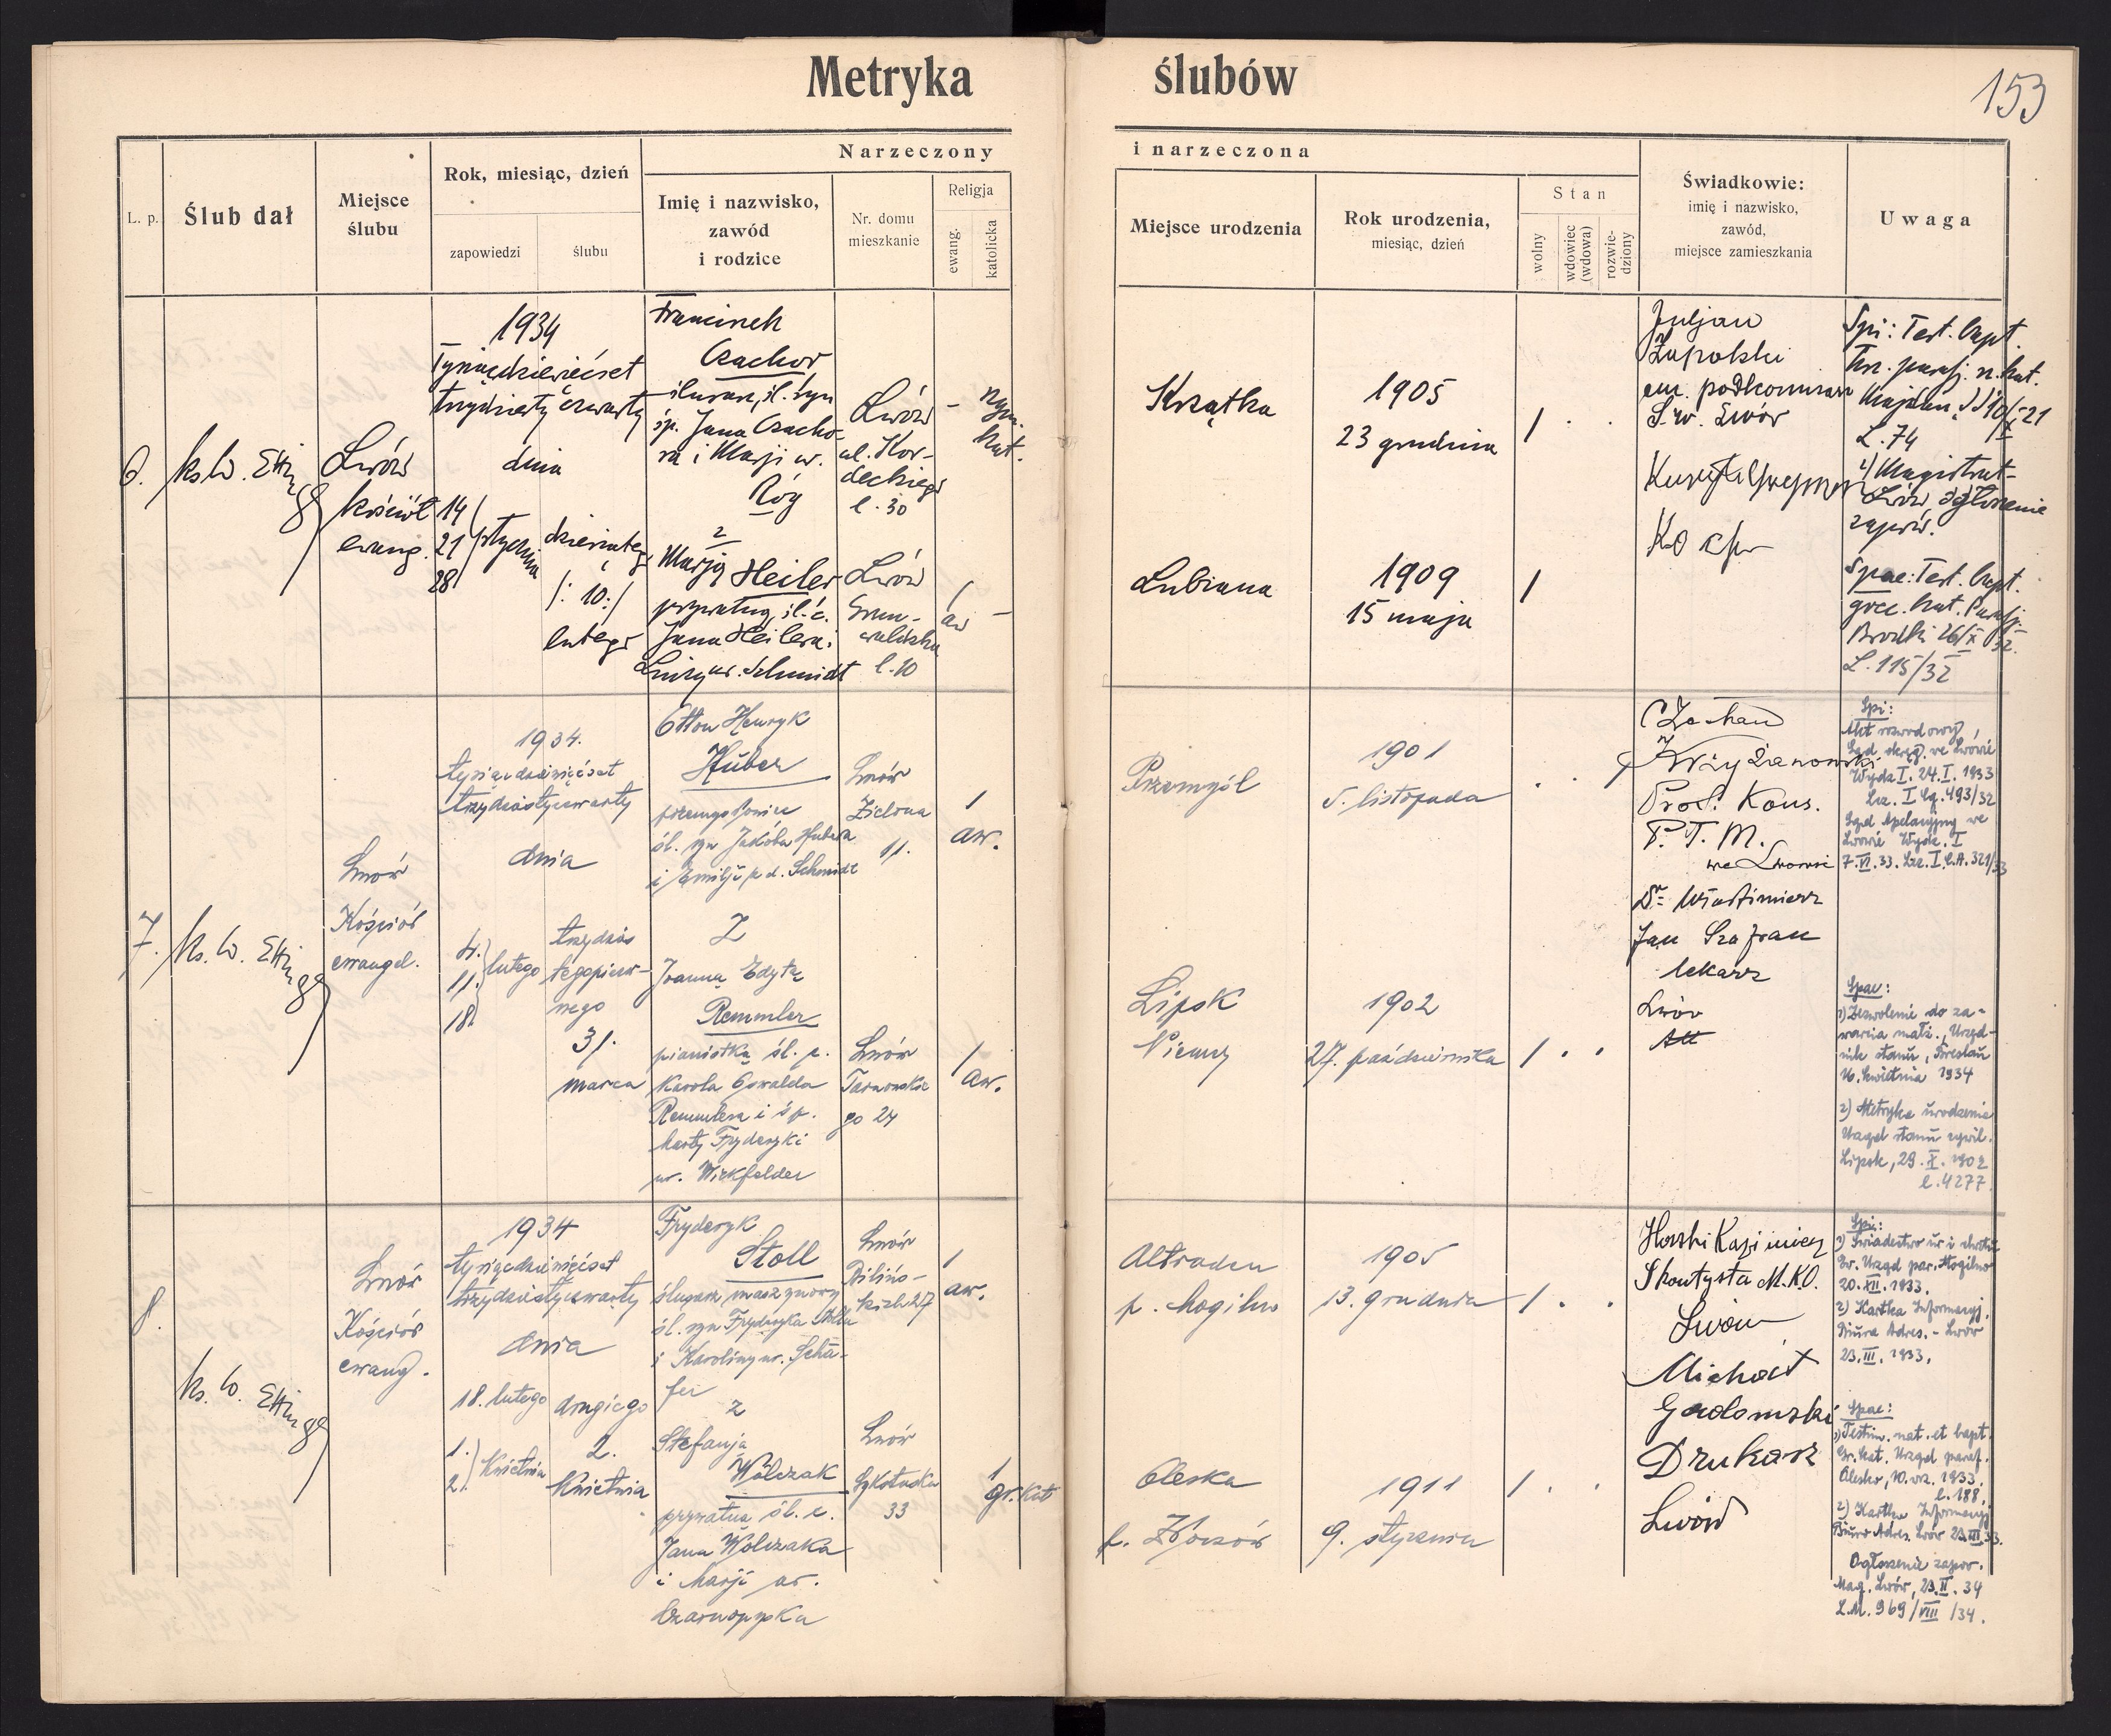 Metryka ślubów
153
Narzeczony i narzeczona
L. p.
Ślub dał
Miejsce
ślubu
Rok, miesiąc, dzień
zapowiedzi
ślubu
Imię i nazwisko,
zawód
i rodzice
Nr. domu
mieszkanie
Religja
ewang.
katolicka
Miejsce urodzenia
Rok urodzenia,
miesiąc, dzień
Stan
wolny
wdowiec
(wdowa)
rozwie-
dziony
Świadkowie:
imię i nazwisko,
zawód,
miejsce zamieszkania
Uwaga
6.
ks. W.
Lwów
kościół
ewang.
1934
Tysiącdziewięćset
trzydziesty czwarty
dnia
14
21
28
stycznia
dziesiątego
/: 10:/
lutego
Franciszek
Czachor
ślusarz, śl. syn
śp. Jana Czacho-
ra i Marji ur.
Róg
z
Marją Heiler
prywatną, śl. c.
Jana Heilera i
Luizy ur. Schmidt
Lwów
ul. Kor-
deckiego
l. 30
Lwów
Grun-
waldzka
l. 10
-
rzym.
kat.
1
aw
-
Krzątka
1905
23 grudnia
1
Lubiana
1909
15 maja
1
Juljan
Żupolski
em. podkomisarz
Lwów
Spi: Test. bapt.
parafj. r. kat.
Majdan
L. 74
2) Magistrat
Lwów ogłoszenie
zapow.
Spae: Test. bapt.
grec. kat. Parafj.
Brodki 26/X 32.
L. 115/32
7.
ks. W.
Lwów
Kościół
ewangel.
1934.
tysiącdziewięćset
trzydziestyczwarty
dnia
4.
11.
18.
lutego
trzydzies
tegopierw-
szego
31.
marca
Otton Henryk
Huber
przemysłowiec
śl. syn Jakóba Hubera
i Emilji z d. Schmidt
Z
Joanną Edytą
Remmler
pianistką śl. c.
Karola Oswalda
Remmlera i śp.
Marty Fryderyki
ur. Wirkfelder
Lwów
Zielona
11.
Lwów
Tarnowskie
go 24
1
aw.
1
aw.
Przemyśl
1901
5. listopada
Lipsk
Niemcy
1902
27. października
1
Krzyżanowski
Prof. Kons.
P. T. M.
we Lwowie
Dr. Włodzimierz
Jan Szafran
lekarz
Lwów
Spi:
Akt rozwodowy,
Sąd okręg. we Lwowie
Wydz. I. 24. I. 1933
Lcz. I Cg. 493/32
Sąd Apelacyjny we
Lwowie Wydz. I
7. VI. 33. Lcz. I. C.A. 321/33
Spae:
1) Zezwolenie do za-
warcia małż., Urzęd-
nik stanu, Breslau
16. kwietnia 1934
2) Metryka urodzenia
Urząd stanu cywil.
Lipsk, 29. X. 1902
l. 4277.
8.
ks. W.
Lwów
Kościół
ewang.
1934
tysiącdziewięćset
trzydziestyczwarty
dnia
18. lutego
1.
2.
Kwietnia
drugiego
2.
Kwietnia
Fryderyk
Stoll
ślusarz maszynowy
śl. syn Fryderyka Stolla
i Karoliny ur. Schä-
fer
z
Stefanją
Wölczak
prywatną śl. c.
Jana Wölczaka
i Marji ur.
Lwów
Biliń-
skich 27
Lwów
Sykstuska
33
1
aw.
1
gr. kat
Altraden
p. Mogilno
1905
13. grudnia
1
Oleska
p. Złoczów
1911
9. stycznia
1
Horski Kazimierz
M.K.O.
Lwów
Michał
Gadomski
Drukarz
Lwów
Spi:
1) Świadectwo ur. i chrztu
Ew. Urząd par. Mogilno
20. XII. 1933.
2) Kartka Informacyj.
Biura Adres. - Lwów
23. III. 1933.
Spae:
1) Testim. nat. et bapt.
Gr. kat. Urząd paraf.
Olesko, 10. wrz. 1933,
l. 188,
2) Kartka Informacyj.
Biuro Adres. Lwów 23. III. 33.
Ogłoszenie zapow.
Mag. Lwów, 23. II. 34
L.M. 969/VIII/34.